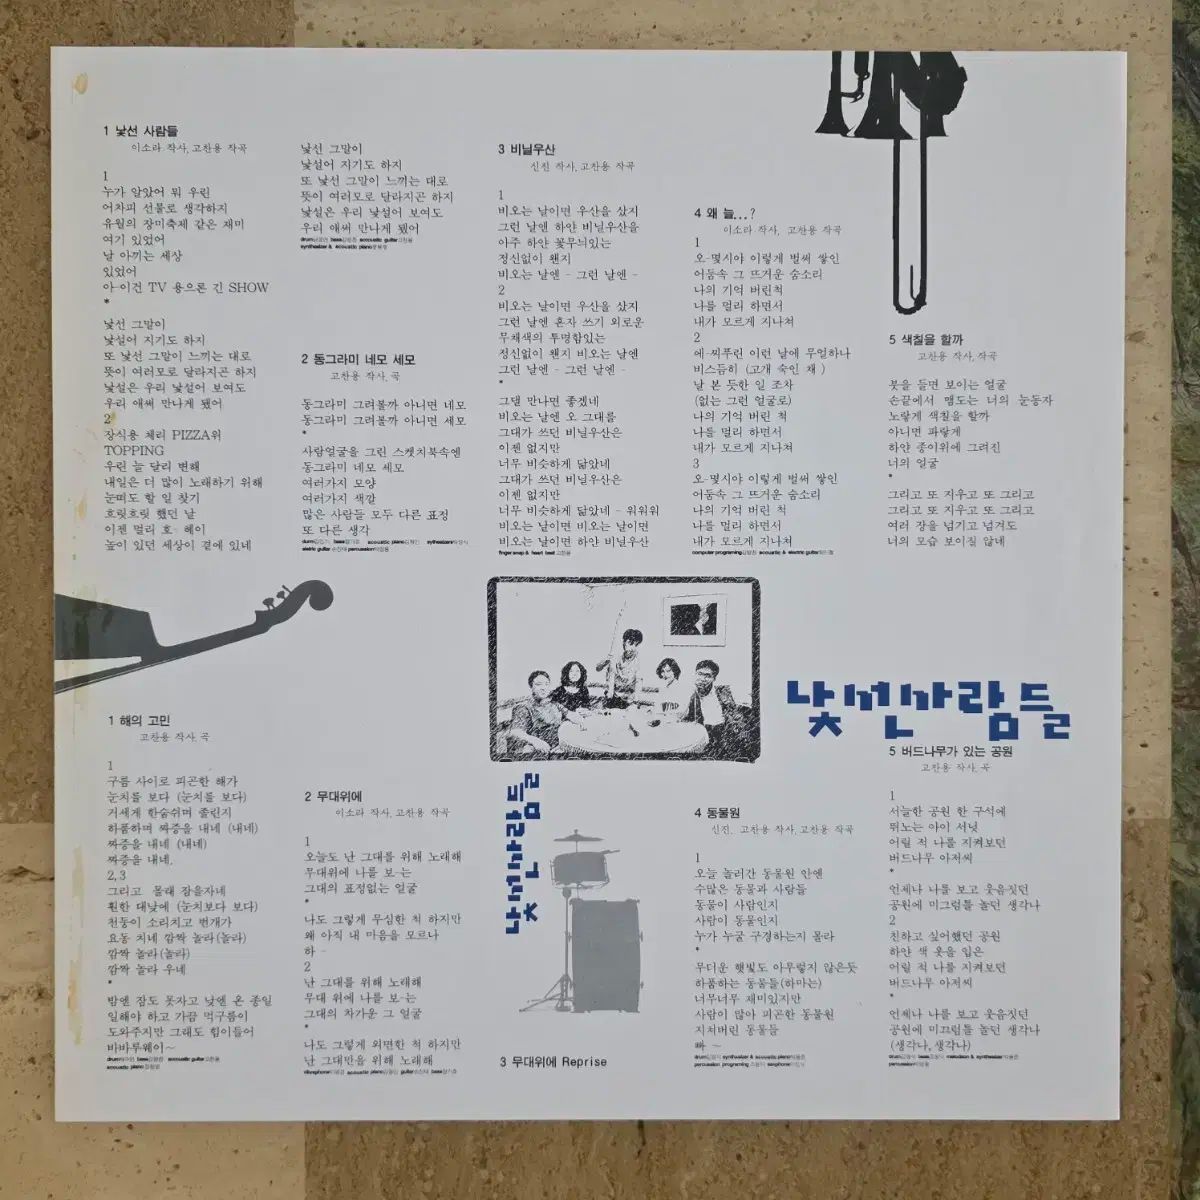 1 낯선 사람들
이소라 작사, 고찬용 작곡
1
누가 알았어 뭐 우린
어차피 선물로 생각하지
유월의 장미축제 같은 재미
여기 있었어
날 아끼는 세상
있었어
아-이건 TV 용으론 긴 SHOW
*
낯선 그말이
낯설어 지기도 하지
또 낯선 그말이 느끼는 대로
뜻이 여러모로 달라지곤 하지
낯설은 우리 낯설어 보여도
우리 애써 만나게 됐어
2
장식용 체리 PIZZA위
TOPPING
우린 늘 달리 변해
내일은 더 많이 노래하기 위해
눈떠도 할 일 찾기
흐릿흐릿 했던 날
이젠 멀리 호- 헤이
높이 있던 세상이 곁에 있네
낯선 그말이
낯설어 지기도 하지
또 낯선 그말이 느끼는 대로
뜻이 여러모로 달라지곤 하지
낯설은 우리 낯설어 보여도
우리 애써 만나게 됐어
2 동그라미 네모 세모
고찬용 작사, 곡
동그라미 그려볼까 아니면 네모
동그라미 그려볼까 아니면 세모
*
사람얼굴을 그린 스켓치북속엔
동그라미 네모 세모
여러가지 모양
여러가지 색깔
많은 사람들 모두 다른 표정
또 다른 생각
3 비닐우산
신진 작사, 고찬용 작곡
1
비오는 날이면 우산을 샀지
그런 날엔 하얀 비닐우산을
아주 하얀 꽃무늬있는
정신없이 왠지
비오는 날엔 - 그런 날엔 -
2
비오는 날이면 우산을 샀지
그런 날엔 혼자 쓰기 외로운
무채색의 투명함있는
정신없이 왠지 비오는 날엔
그런 날엔 - 그런 날엔 -
*
그댈 만나면 좋겠네
비오는 날엔 오 그대를
그대가 쓰던 비닐우산은
이젠 없지만
너무 비슷하게 닮았네
그대가 쓰던 비닐우산은
이젠 없지만
너무 비슷하게 닮았네 - 워워워
비오는 날이면 비오는 날이면
비오는 날이면 하얀 비닐우산
finger snap & heart beat 고찬용
4 왜 늘...?
이소라 작사, 고찬용 작곡
1
오-몇시야 이렇게 벌써 쌓인
어둠속 그 뜨거운 숨소리
나의 기억 버린척
나를 멀리 하면서
내가 모르게 지나쳐
2
에-찌푸린 이런 날에 무얼하나
비스듬히 (고개 숙인 채)
날 본 듯한 일 조차
(없는 그런 얼굴로)
나의 기억 버린 척
나를 멀리 하면서
내가 모르게 지나쳐
3
오-몇시야 이렇게 벌써 쌓인
어둠속 그 뜨거운 숨소리
나의 기억 버린 척
나를 멀리 하면서
내가 모르게 지나쳐
5 색칠을 할까
고찬용 작사, 작곡
붓을 들면 보이는 얼굴
손끝에서 맴도는 너의 눈동자
노랗게 색칠을 할까
아니면 파랗게
하얀 종이위에 그려진
너의 얼굴
*
그리고 또 지우고 또 그리고
그리고 또 지우고 또 그리고
여러 장을 넘기고 넘겨도
너의 모습 보이질 않네
낯선사람들
낯선사람들
1 해의 고민
고찬용 작사, 곡
1
구름 사이로 피곤한 해가
눈치를 보다 (눈치를 보다)
거세게 한숨쉬며 졸린지
하품하며 짜증을 내네 (내네)
짜증을 내네 (내네)
짜증을 내네.
2,3
그리고 몰래 잠을자네
훤한 대낮에 (눈치보다 보다)
천둥이 소리치고 번개가
요동 치네 깜짝 놀라(놀라)
깜짝 놀라(놀라)
깜짝 놀라 우네
*
밤엔 잠도 못자고 낮엔 온 종일
일해야 하고 가끔 먹구름이
도와주지만 그래도 힘이들어
바바루웨이~
2 무대위에
이소라 작사, 고찬용 작곡
1
오늘도 난 그대를 위해 노래해
무대위에 나를 보-는
그대의 표정없는 얼굴
*
나도 그렇게 무심한 척 하지만
왜 아직 내 마음을 모르나
하 -
2
난 그대를 위해 노래해
무대 위에 나를 보-는
그대의 차가운 그 얼굴
*
나도 그렇게 외면한 척 하지만
난 그대만을 위해 노래해
3 무대위에 Reprise
4 동물원
신진, 고찬용 작사, 고찬용 작곡
1
오늘 놀러간 동물원 안엔
수많은 동물과 사람들
동물이 사람인지
사람이 동물인지
누가 누굴 구경하는지 몰라
*
무더운 햇빛도 아무렇지 않은듯
하품하는 동물들(하마는)
너무너무 재미있지만
사람이 많아 피곤한 동물원
지쳐버린 동물들
빠 ~
5 버드나무가 있는 공원
고찬용 작사, 곡
1
서늘한 공원 한 구석에
뛰노는 아이 서넛
어릴 적 나를 지켜보던
버드나무 아저씨
*
언제나 나를 보고 웃음짓던
공원에 미끄럼틀 놀던 생각나
2
친하고 싶어했던 공원
하얀 색 옷을 입은
어릴 적 나를 지켜보던
버드나무 아저씨
*
언제나 나를 보고 웃음짓던
공원에 미끄럼틀 놀던 생각나
(생각나, 생각나)